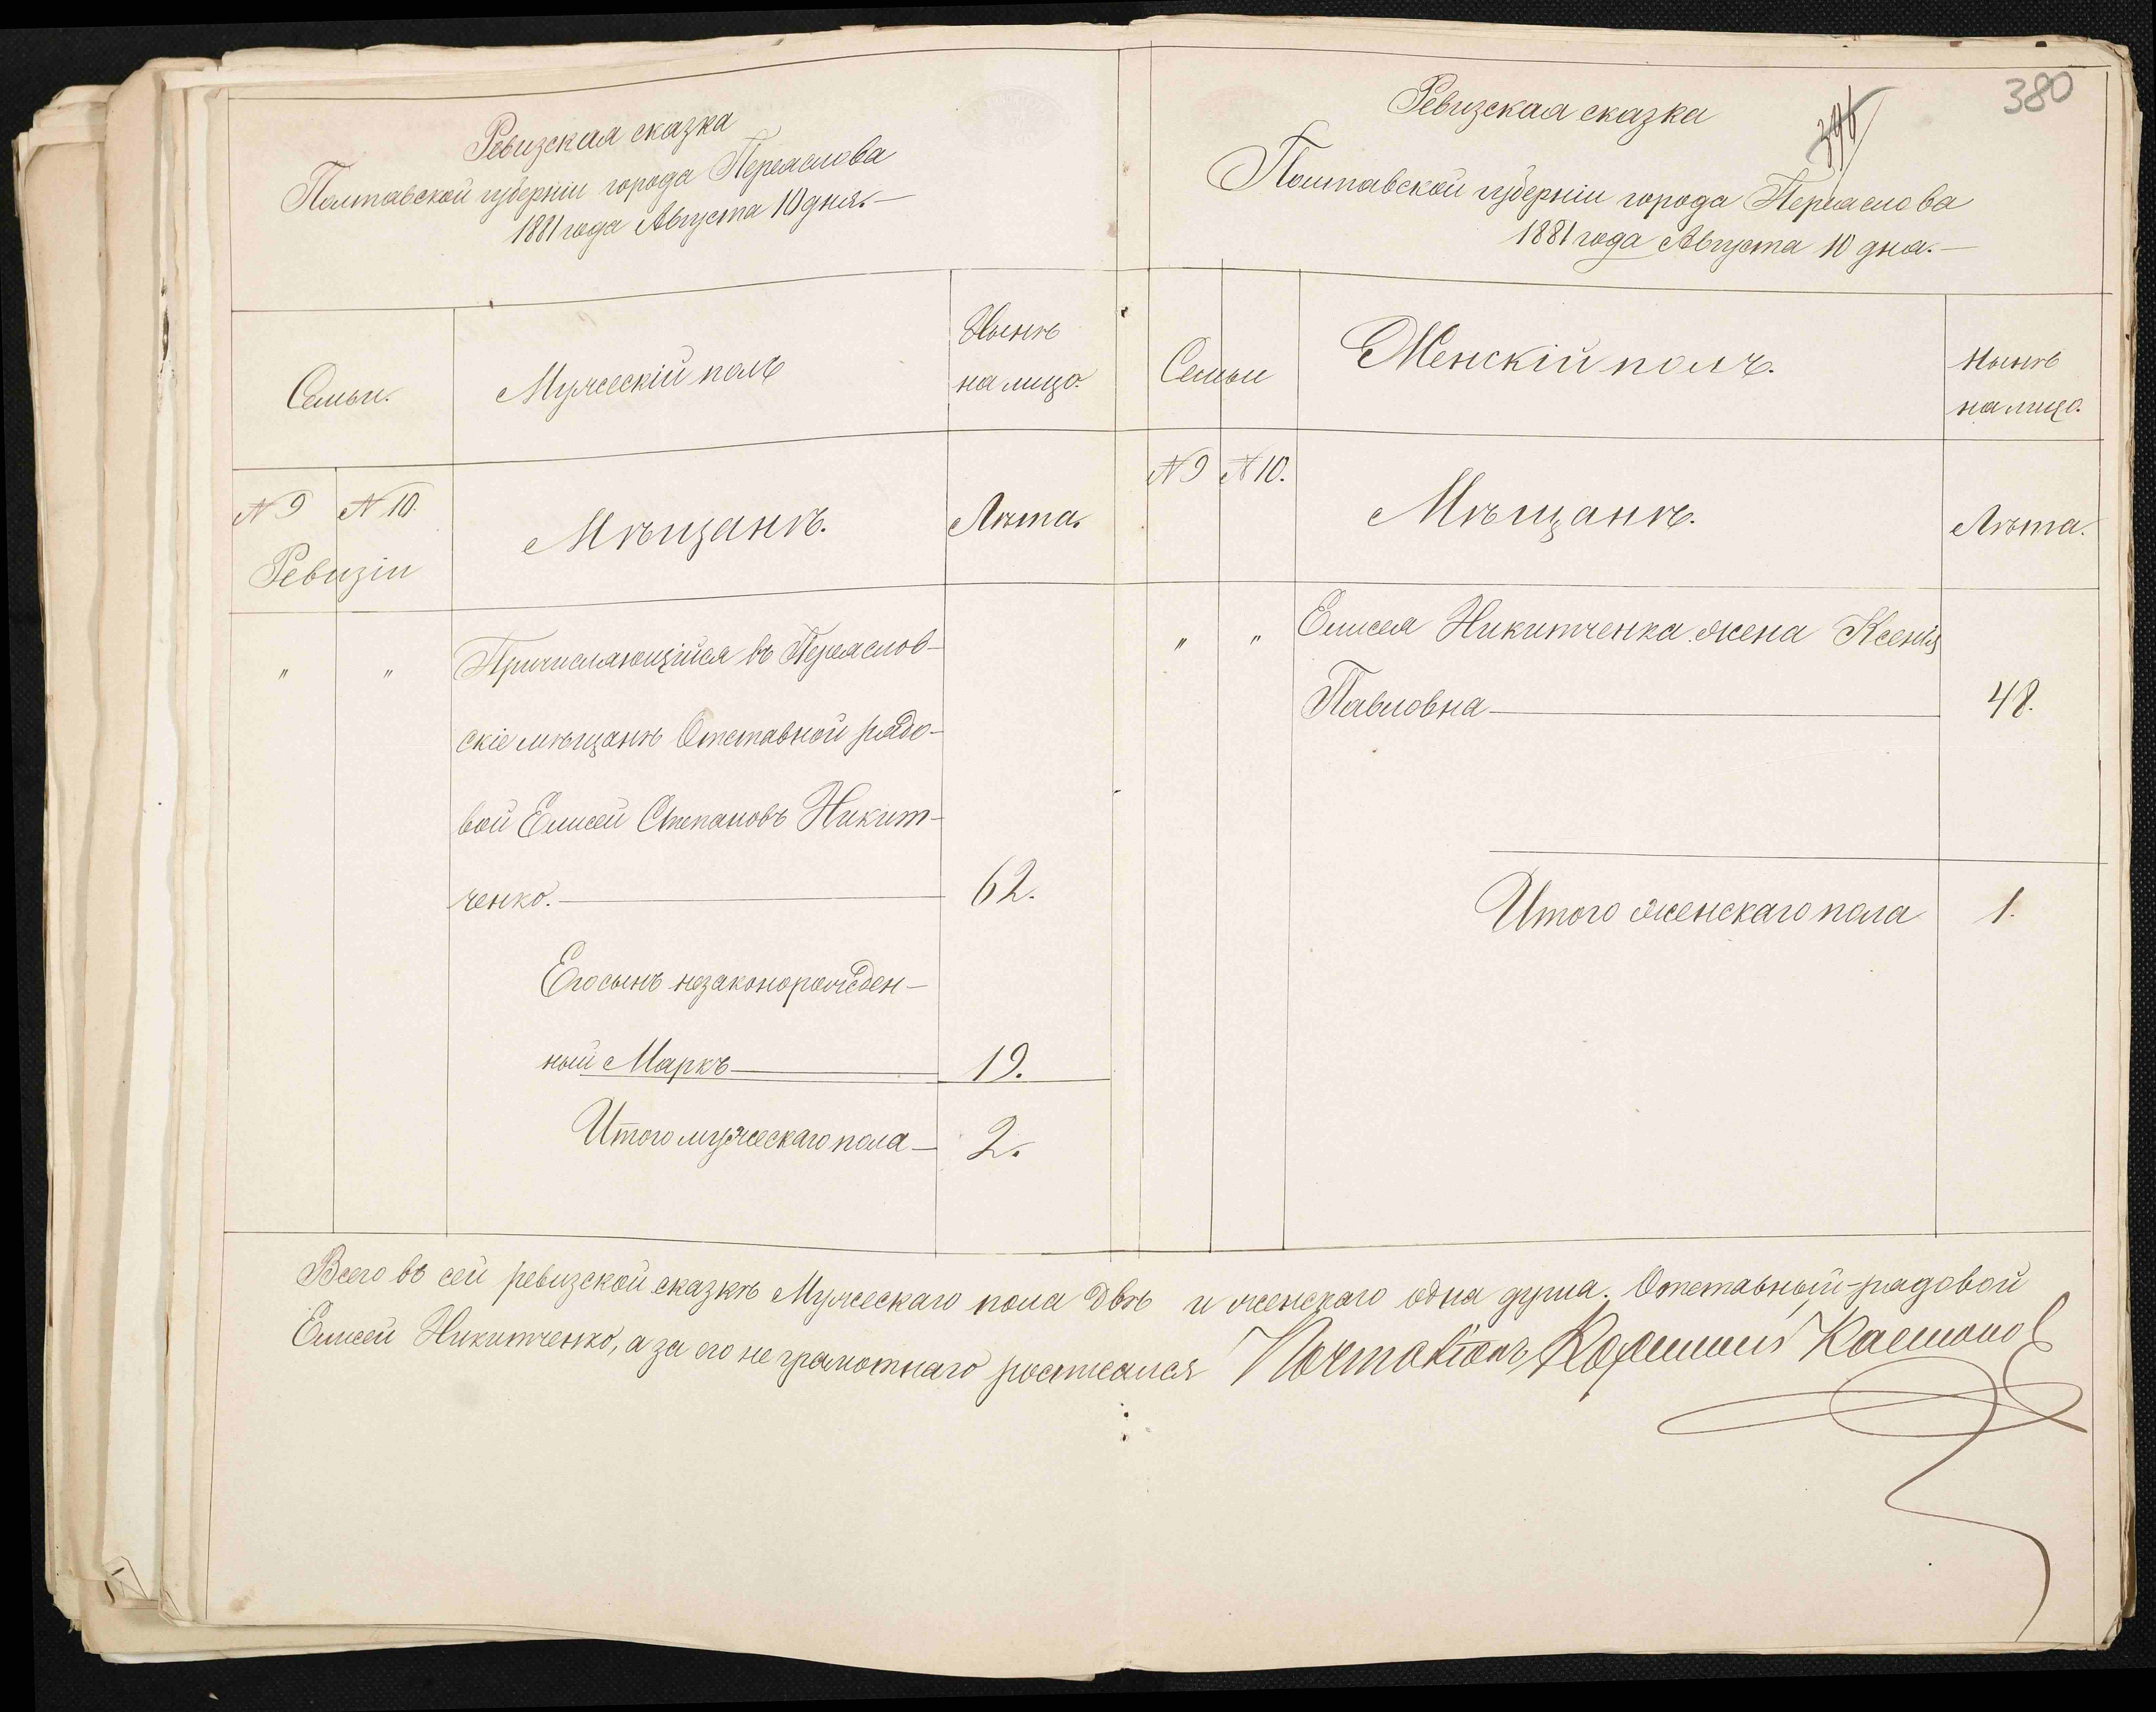 Ревизская сказка
Полтавской губерніи города Переяслова
1881 года Августа 10 дня.—
Семьи.
Мужескій полъ
Нынѣ
на лицо.
№ 9
№ 10.
Ревизіи
Мѣщанѣ.
Лѣта.
" "
Причисляющійся въ Переяслов-
скіе мѣщанѣ Отставной рядо-
вой Елисей Степановъ Никит-
ченко. 62.
Его сынъ незаконорожден-
ный Маркъ 19.
Итого мужескаго пола 2.
380
Ревизская сказка
Полтавской губерніи города Переяслова
1881 года Августа 10 дня.—
Семьи
Женскій полъ.
Нынѣ
на лицо.
№ 9
№ 10.
Мѣщанѣ.
Лѣта.
" "
Елисея Никитченка жена Ксенія
Павловна 48.
Итого женскаго пола 1.
Всего въ сей ревизской сказкѣ Мужескаго пола двѣ и женскаго одна душа. Отставный рядовой
Елисей Никитченко, а за его не грамотнаго росписался Почтоліонъ